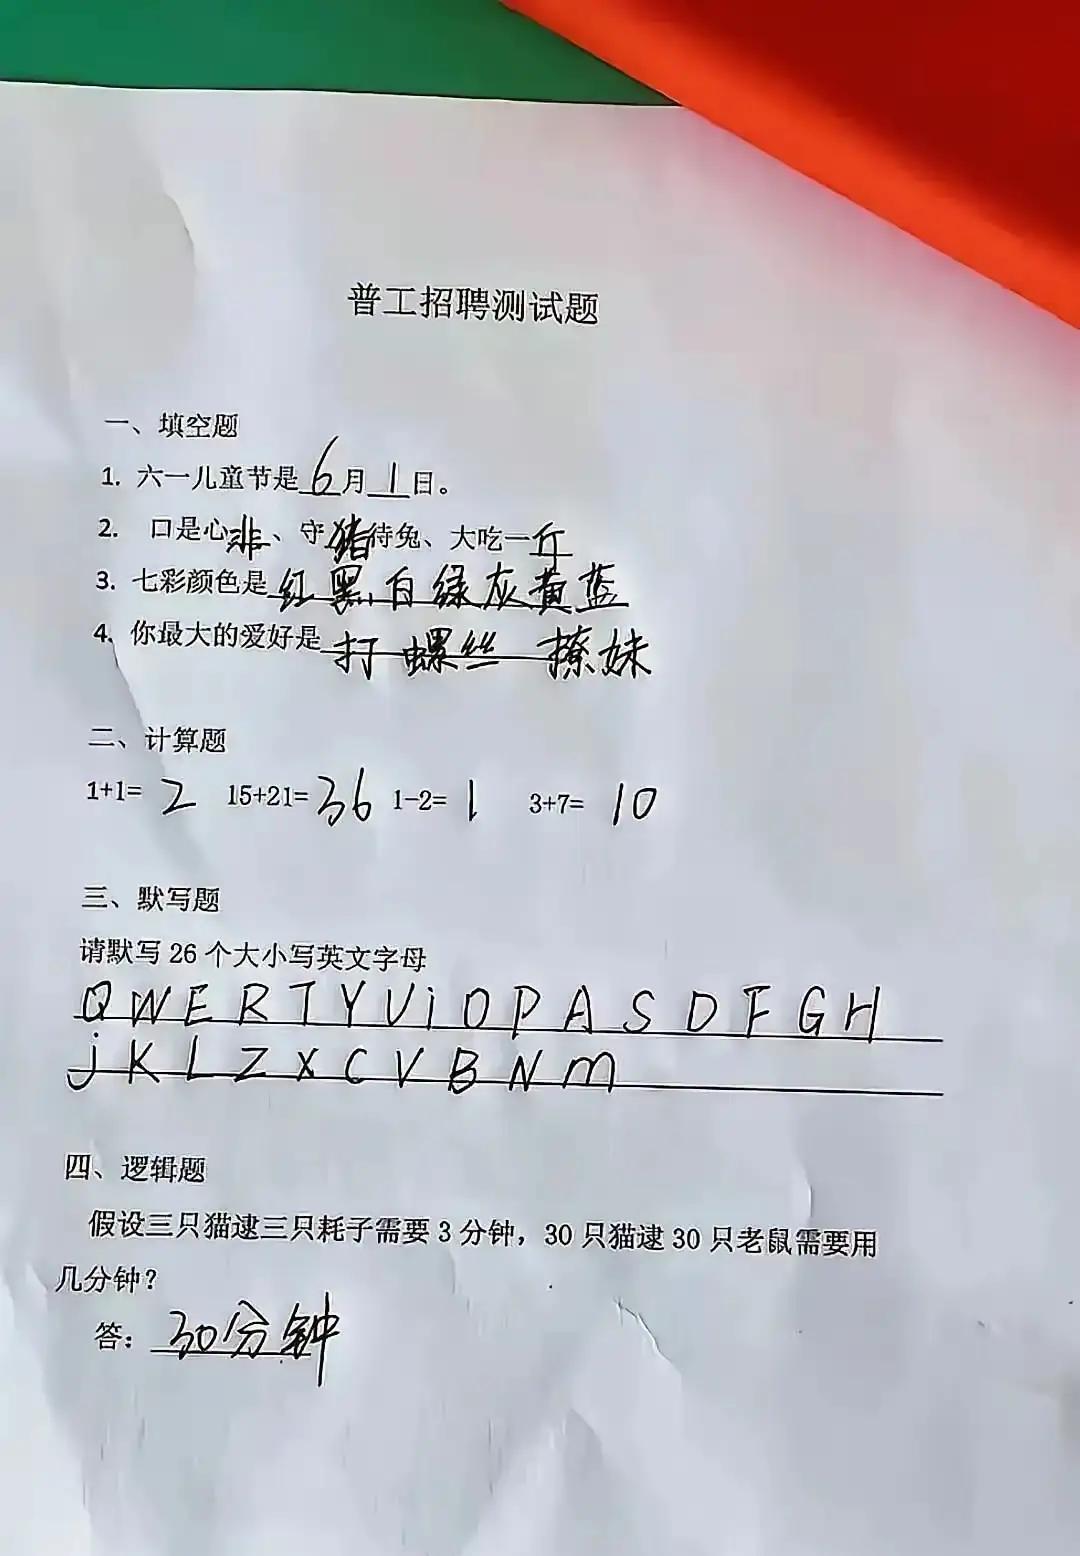 普工招聘测试题
一、填空题
1. 六一儿童节是6月1日。
2. 口是心非、守猪待兔、大吃一斤
3. 七彩颜色是红黑白绿灰黄蓝
4. 你最大的爱好是打螺丝 撩妹
二、计算题
1+1= 2 15+21= 36 1-2= 1 3+7= 10
三、默写题
请默写 26 个大小写英文字母
Q W E R T Y U i O P A S D F G H
j K L Z X C V B N m
四、逻辑题
假设三只猫逮三只耗子需要 3 分钟，30 只猫逮 30 只老鼠需要用
几分钟？
答：30分钟